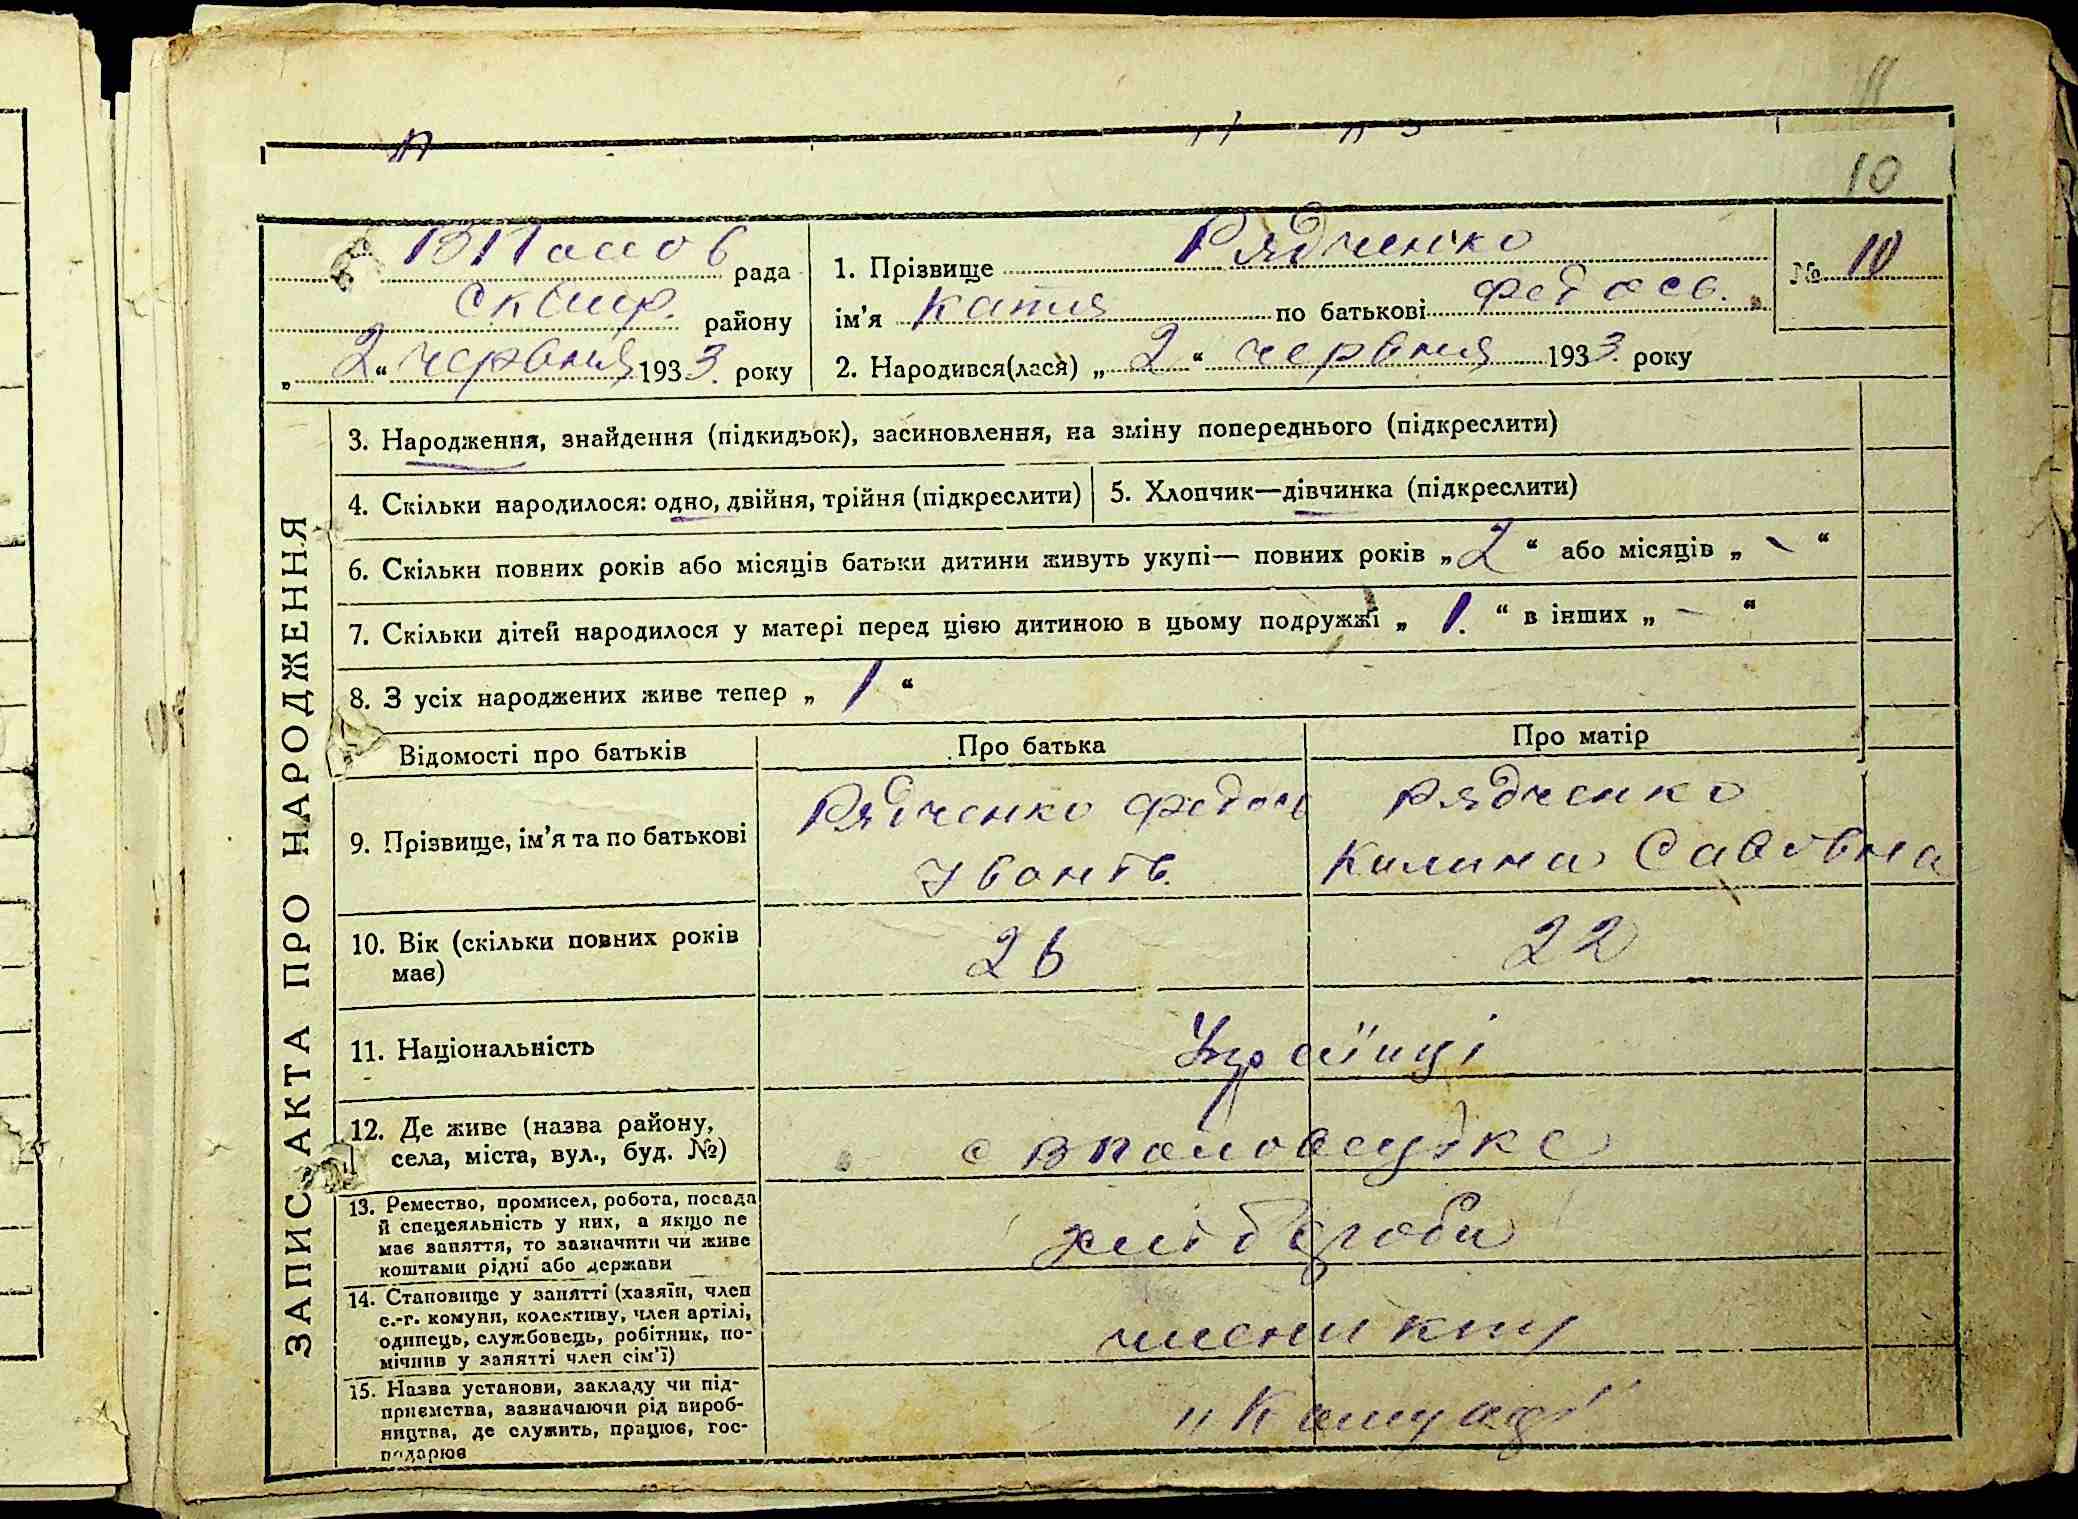 10
В Полов рада
Сквир. району
„2“ червня 1933 року
1. Прізвище Рядченко
ім’я Катя по батькові Федось.
2. Народився(лася) „2“ червня 1933 року
№ 10
ЗАПИС АКТА ПРО НАРОДЖЕННЯ
3. Народження, знайдення (підкидьок), засиновлення, на зміну попереднього (підкреслити)
4. Скільки народилося: одно, двійня, трійня (підкреслити)
5. Хлопчик—дівчинка (підкреслити)
6. Скільки повних років або місяців батьки дитини живуть укупі— повних років „2“ або місяців „-“
7. Скільки дітей народилося у матері перед цією дитиною в цьому подружжі „1.“ в інших „-“
8. З усіх народжених живе тепер „1“
Відомості про батьків
Про батька
Про матір
9. Прізвище, ім’я та по батькові
Рядченко Федось
Іванів.
Рядченко
Килина Савівна
10. Вік (скільки повних років
має)
26
22
11. Національність
Українці
12. Де живе (назва району,
села, міста, вул., буд. №)
с В Половецьке
13. Ремество, промисел, робота, посада
й спецеяльність у них, а якщо не
має заняття, то зазначити чи живе
коштами рідні або держави
хлібороби
14. Становище у занятті (хазяїн, член
с.-г. комуни, колективу, член артілі,
одинець, службовець, робітник, по-
мічнив у занятті член сім’ї)
члени
15. Назва установи, закладу чи під-
приємства, зазначаючи рід вироб-
ництва, де служить, працює, гос-
подарює